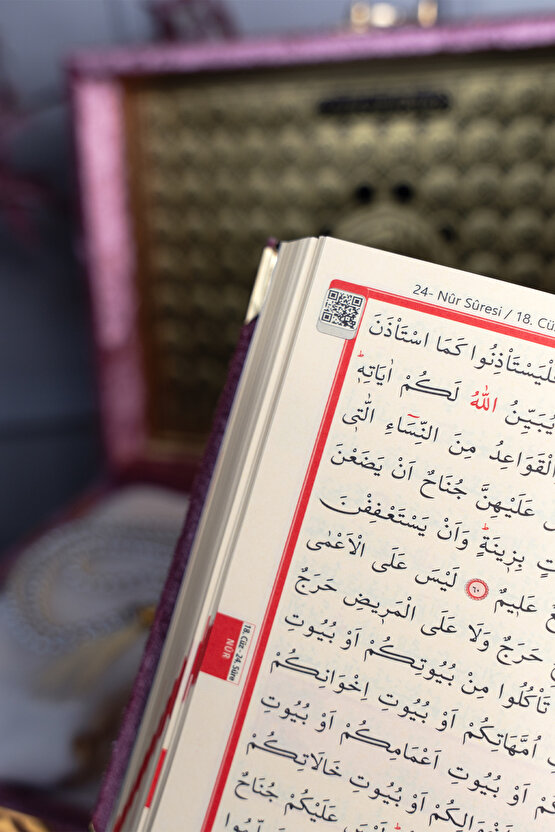 24- Nûr Sûresi / 18. Cü
فَلْيَسْتَأْذِنُوا كَمَا اسْتَأْذَنَ
يُبَيِّنُ اللّٰهُ لَكُمْ اٰيَاتِهٖ
الْقَوَاعِدُ مِنَ النِّسَٓاءِ الّٰتٖى
عَلَيْهِنَّ جُنَاحٌ اَنْ يَضَعْنَ
بِزٖينَةٍ وَاَنْ يَسْتَعْفِفْنَ
عَلٖيمٌ ﴿٦٠﴾ لَيْسَ عَلَى الْاَعْمٰى
حَرَجٌ وَلَا عَلَى الْمَرٖيضِ حَرَجٌ
تَأْكُلُوا مِنْ بُيُوتِكُمْ اَوْ بُيُوتِ
اُمَّهَاتِكُمْ اَوْ بُيُوتِ اِخْوَانِكُمْ
اَوْ بُيُوتِ اَعْمَامِكُمْ اَوْ بُيُوتِ
اَوْ بُيُوتِ خَالَاتِكُمْ
عَلَيْكُمْ جُنَاحٌ
18. Cüz - 24. Sûre
NÛR